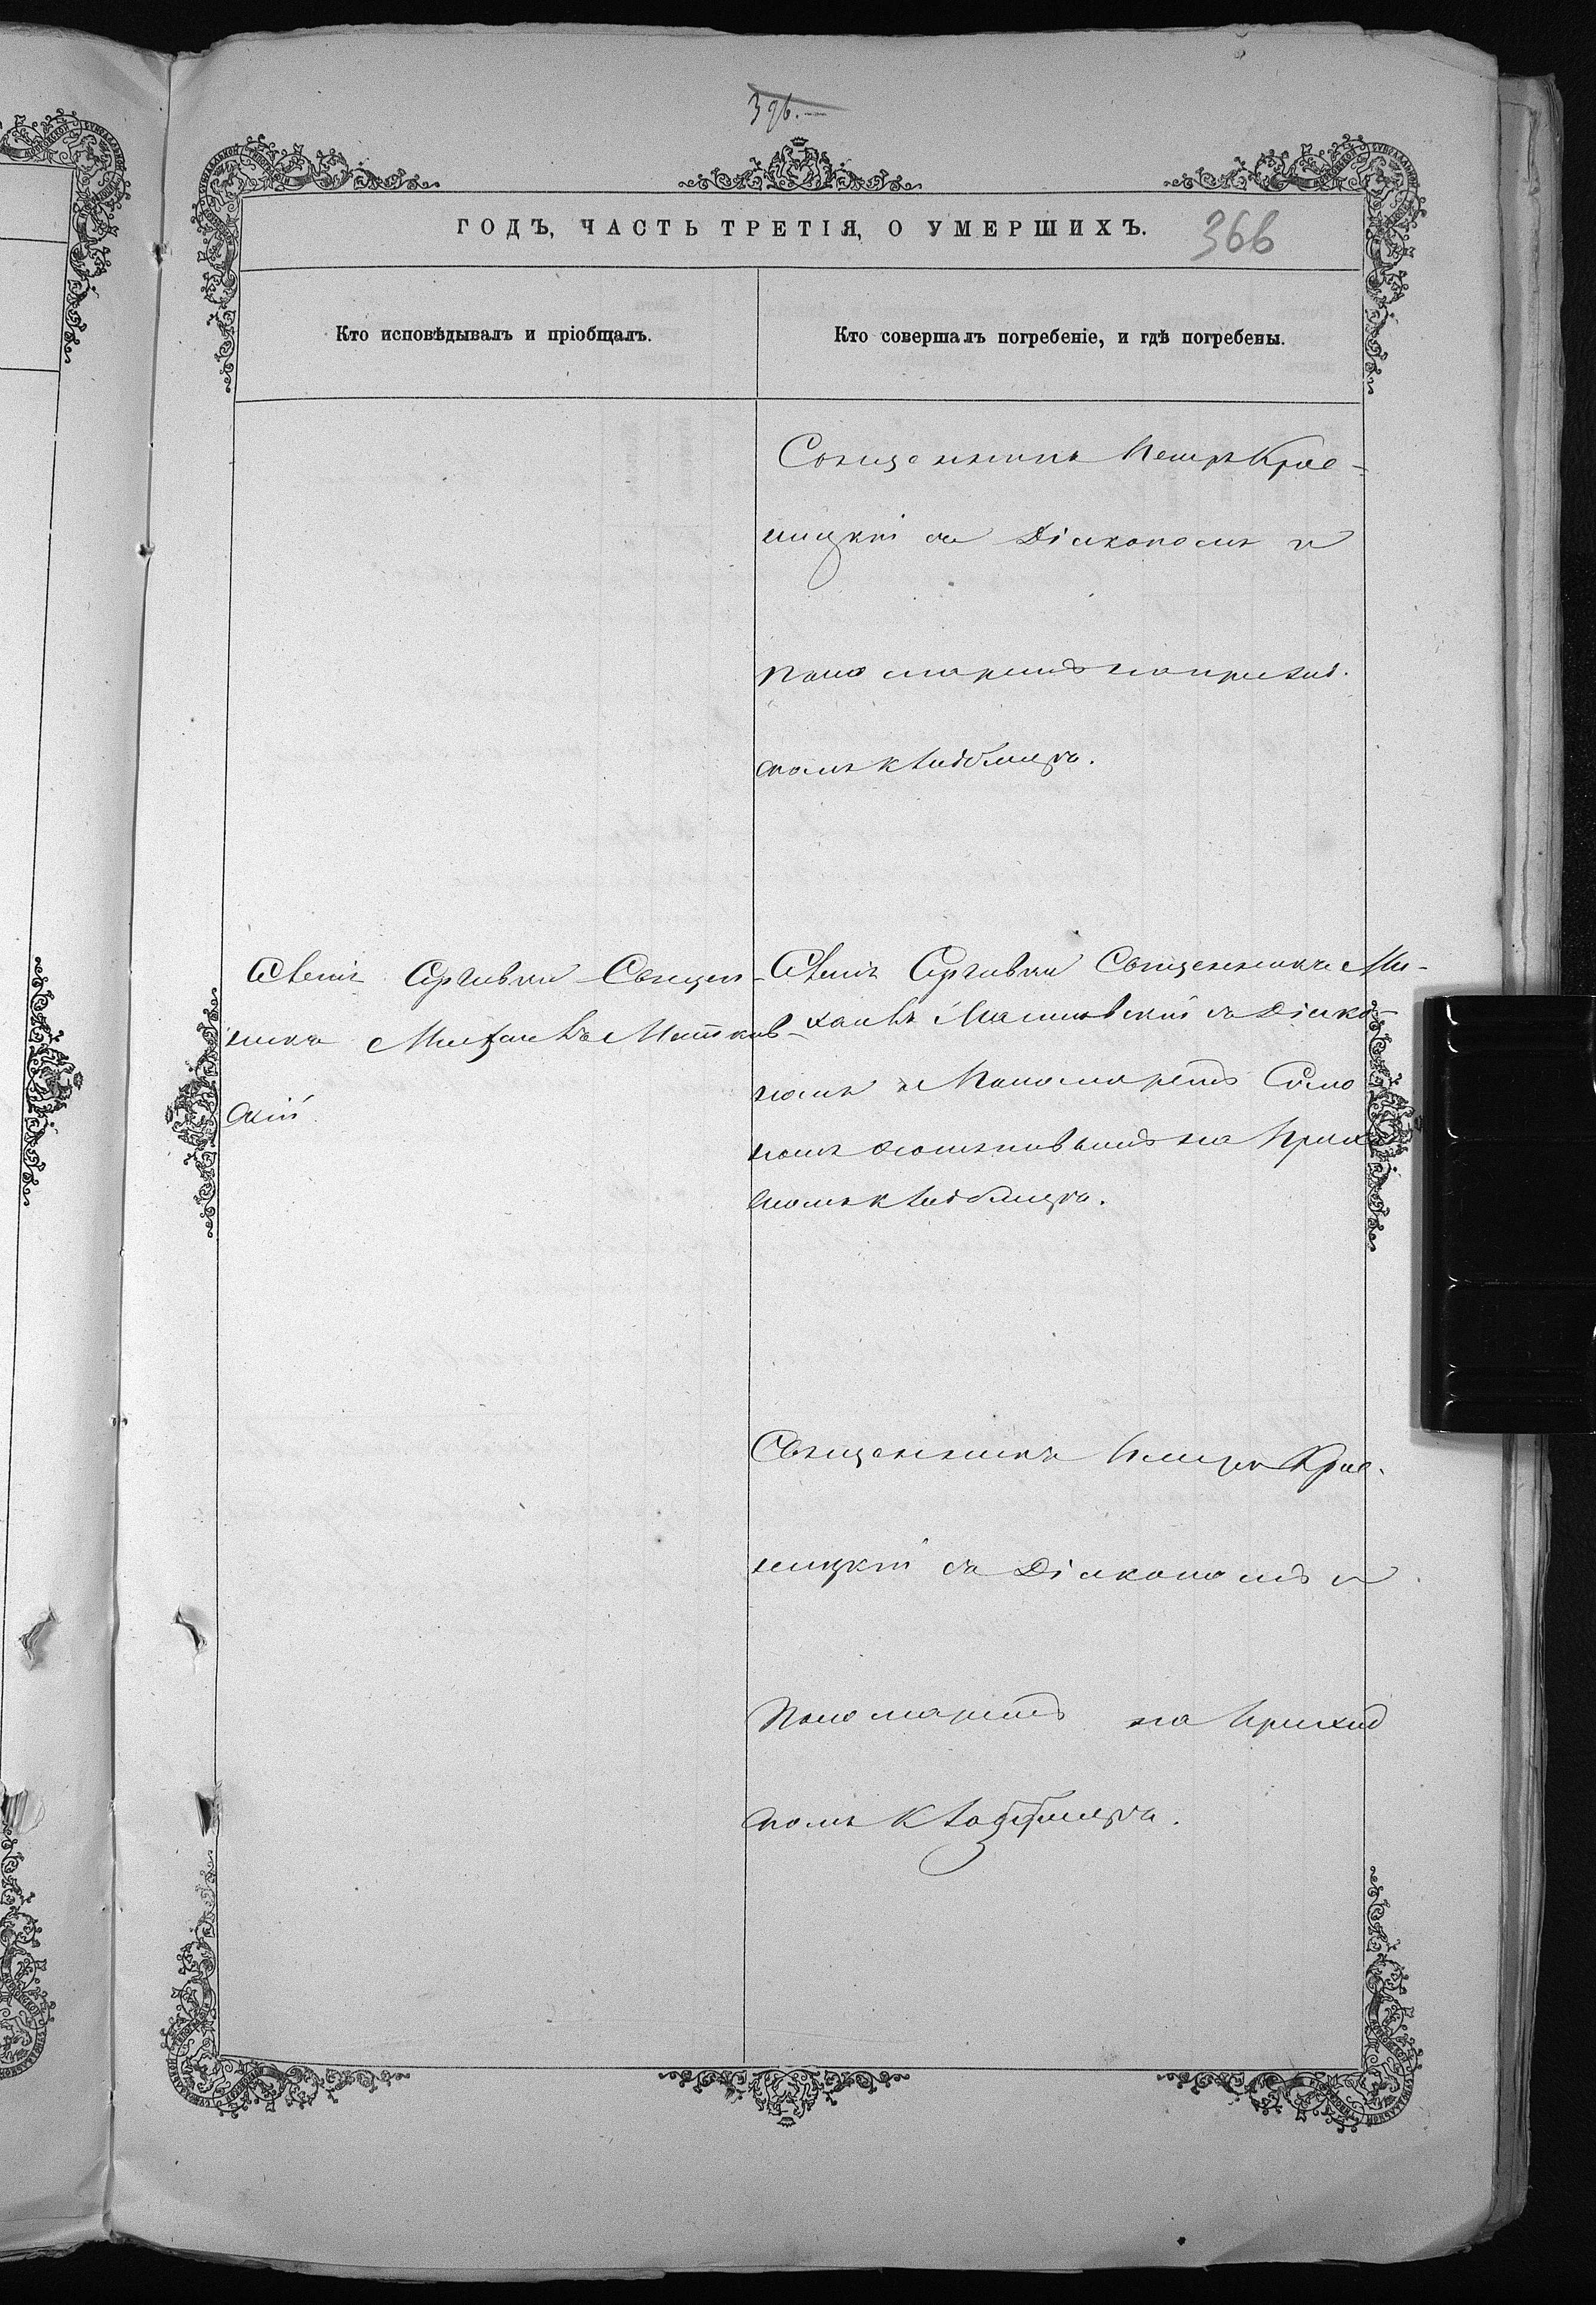 396.
ГОДЪ, ЧАСТЬ ТРЕТІЯ, О УМЕРШИХЪ.
366
Кто исповѣдывалъ и пріобщалъ.
Кто совершалъ погребеніе, и гдѣ погребены.
Священникъ Петръ Крас-
ницкій съ Діакономъ и
пономаремъ на приход.
скомъ кладбищѣ.
Села Сергіевки Священ-
никъ Михаилъ
скій
Села Сергіевки Священникъ Ми-
хаилъ съ Діако-
номъ и Пономаремъ
на Прихо
скомъ кладбищѣ.
Священникъ Петръ Крас-
ницкій съ Діакономъ и
Пономаремъ на приход
скомъ кладбищѣ.